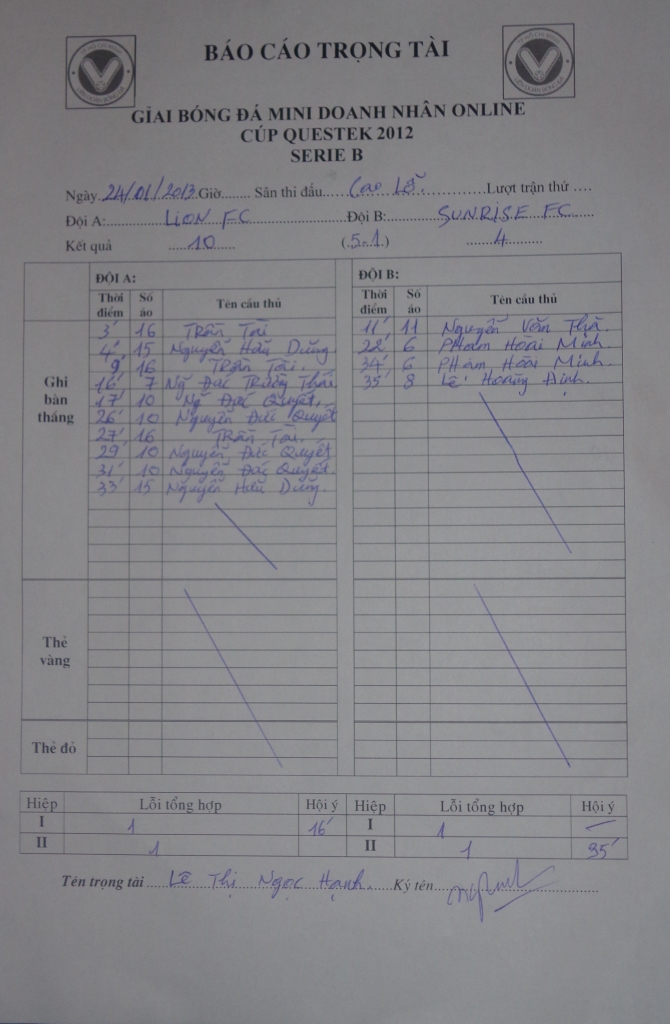 BÁO CÁO TRỌNG TÀI
GIẢI BÓNG ĐÁ MINI DOANH NHÂN ONLINE
CÚP QUESTEK 2012
SERIE B
Ngày 24/01/2013 Giờ........ Sân thi đấu... Cao Lỗ. ............Lượt trận thứ ....
Đội A: LION FC Đội B: SUNRISE FC
Kết quả 10 (.5-1.) 4
ĐỘI A: ĐỘI B:
Thời điểm Số áo Tên cầu thủ Thời điểm Số áo Tên cầu thủ
Ghi bàn thắng
3' 16 Trần Tài 11' 11 Nguyễn Văn
4' 15 Nguyễn Hữu Dũng 22' 6 PHạm Hoài Minh
9' 16 Trần Tài. 34' 6 PHạm Hoài Minh.
16' 7 Ng Đắc Trường Thái 35' 8 Lê Hoàng Định.
17' 10 Ng Đắc Quyết.
26' 10 Nguyễn Đức Quyết
27' 16 Trần Tài.
29' 10 Nguyễn Đắc Quyết
31' 10 Nguyễn Đắc Quyết.
33' 15 Nguyễn Hữu Dũng.
Thẻ vàng
Thẻ đỏ
Hiệp Lỗi tổng hợp Hội ý Hiệp Lỗi tổng hợp Hội ý
I 1 16' I 1 —
II 1 II 1 35'
Tên trọng tài Lê Thị Ngọc Hạnh. Ký tên